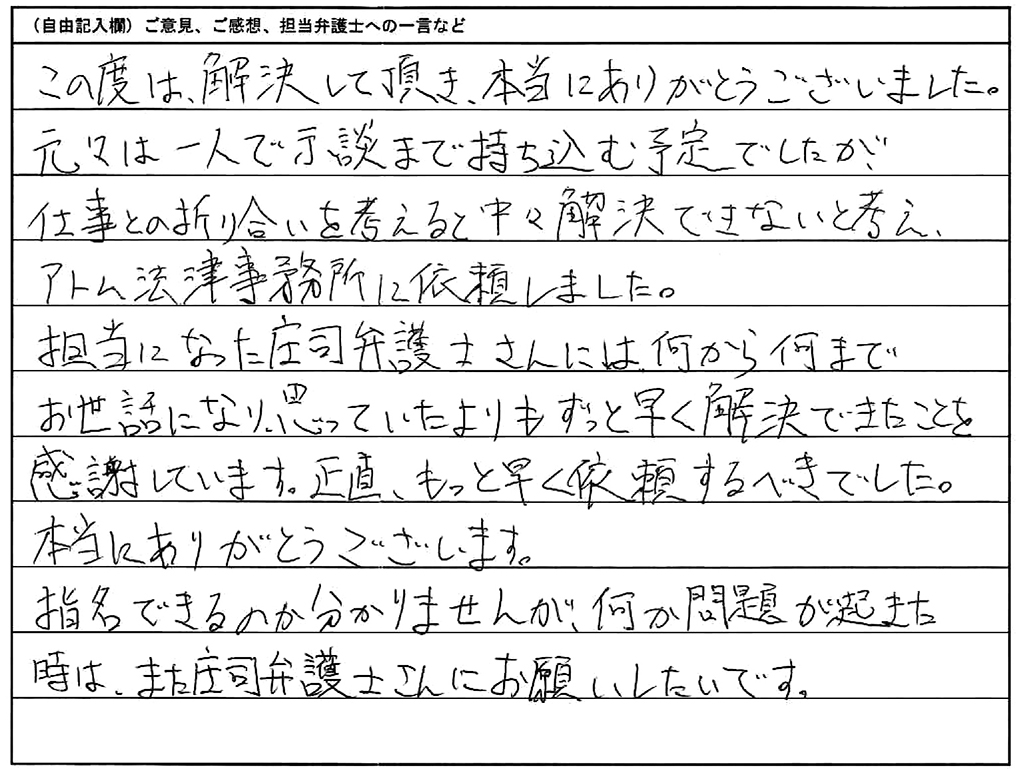 （自由記入欄）ご意見、ご感想、担当弁護士への一言など
この度は、解決して頂き、本当にありがとうございました。
元々は一人で示談まで持ち込む予定でしたが、
仕事との折り合いを考えると中々解決できないと考え、
アトム法律事務所に依頼しました。
担当になった庄司弁護士さんには、何から何まで
お世話になり、思っていたよりもずっと早く解決できたことを
感謝しています。正直、もっと早く依頼するべきでした。
本当にありがとうございます。
指名できるのか分かりませんが、何か問題が起きた
時は、また庄司弁護士さんにお願いしたいです。